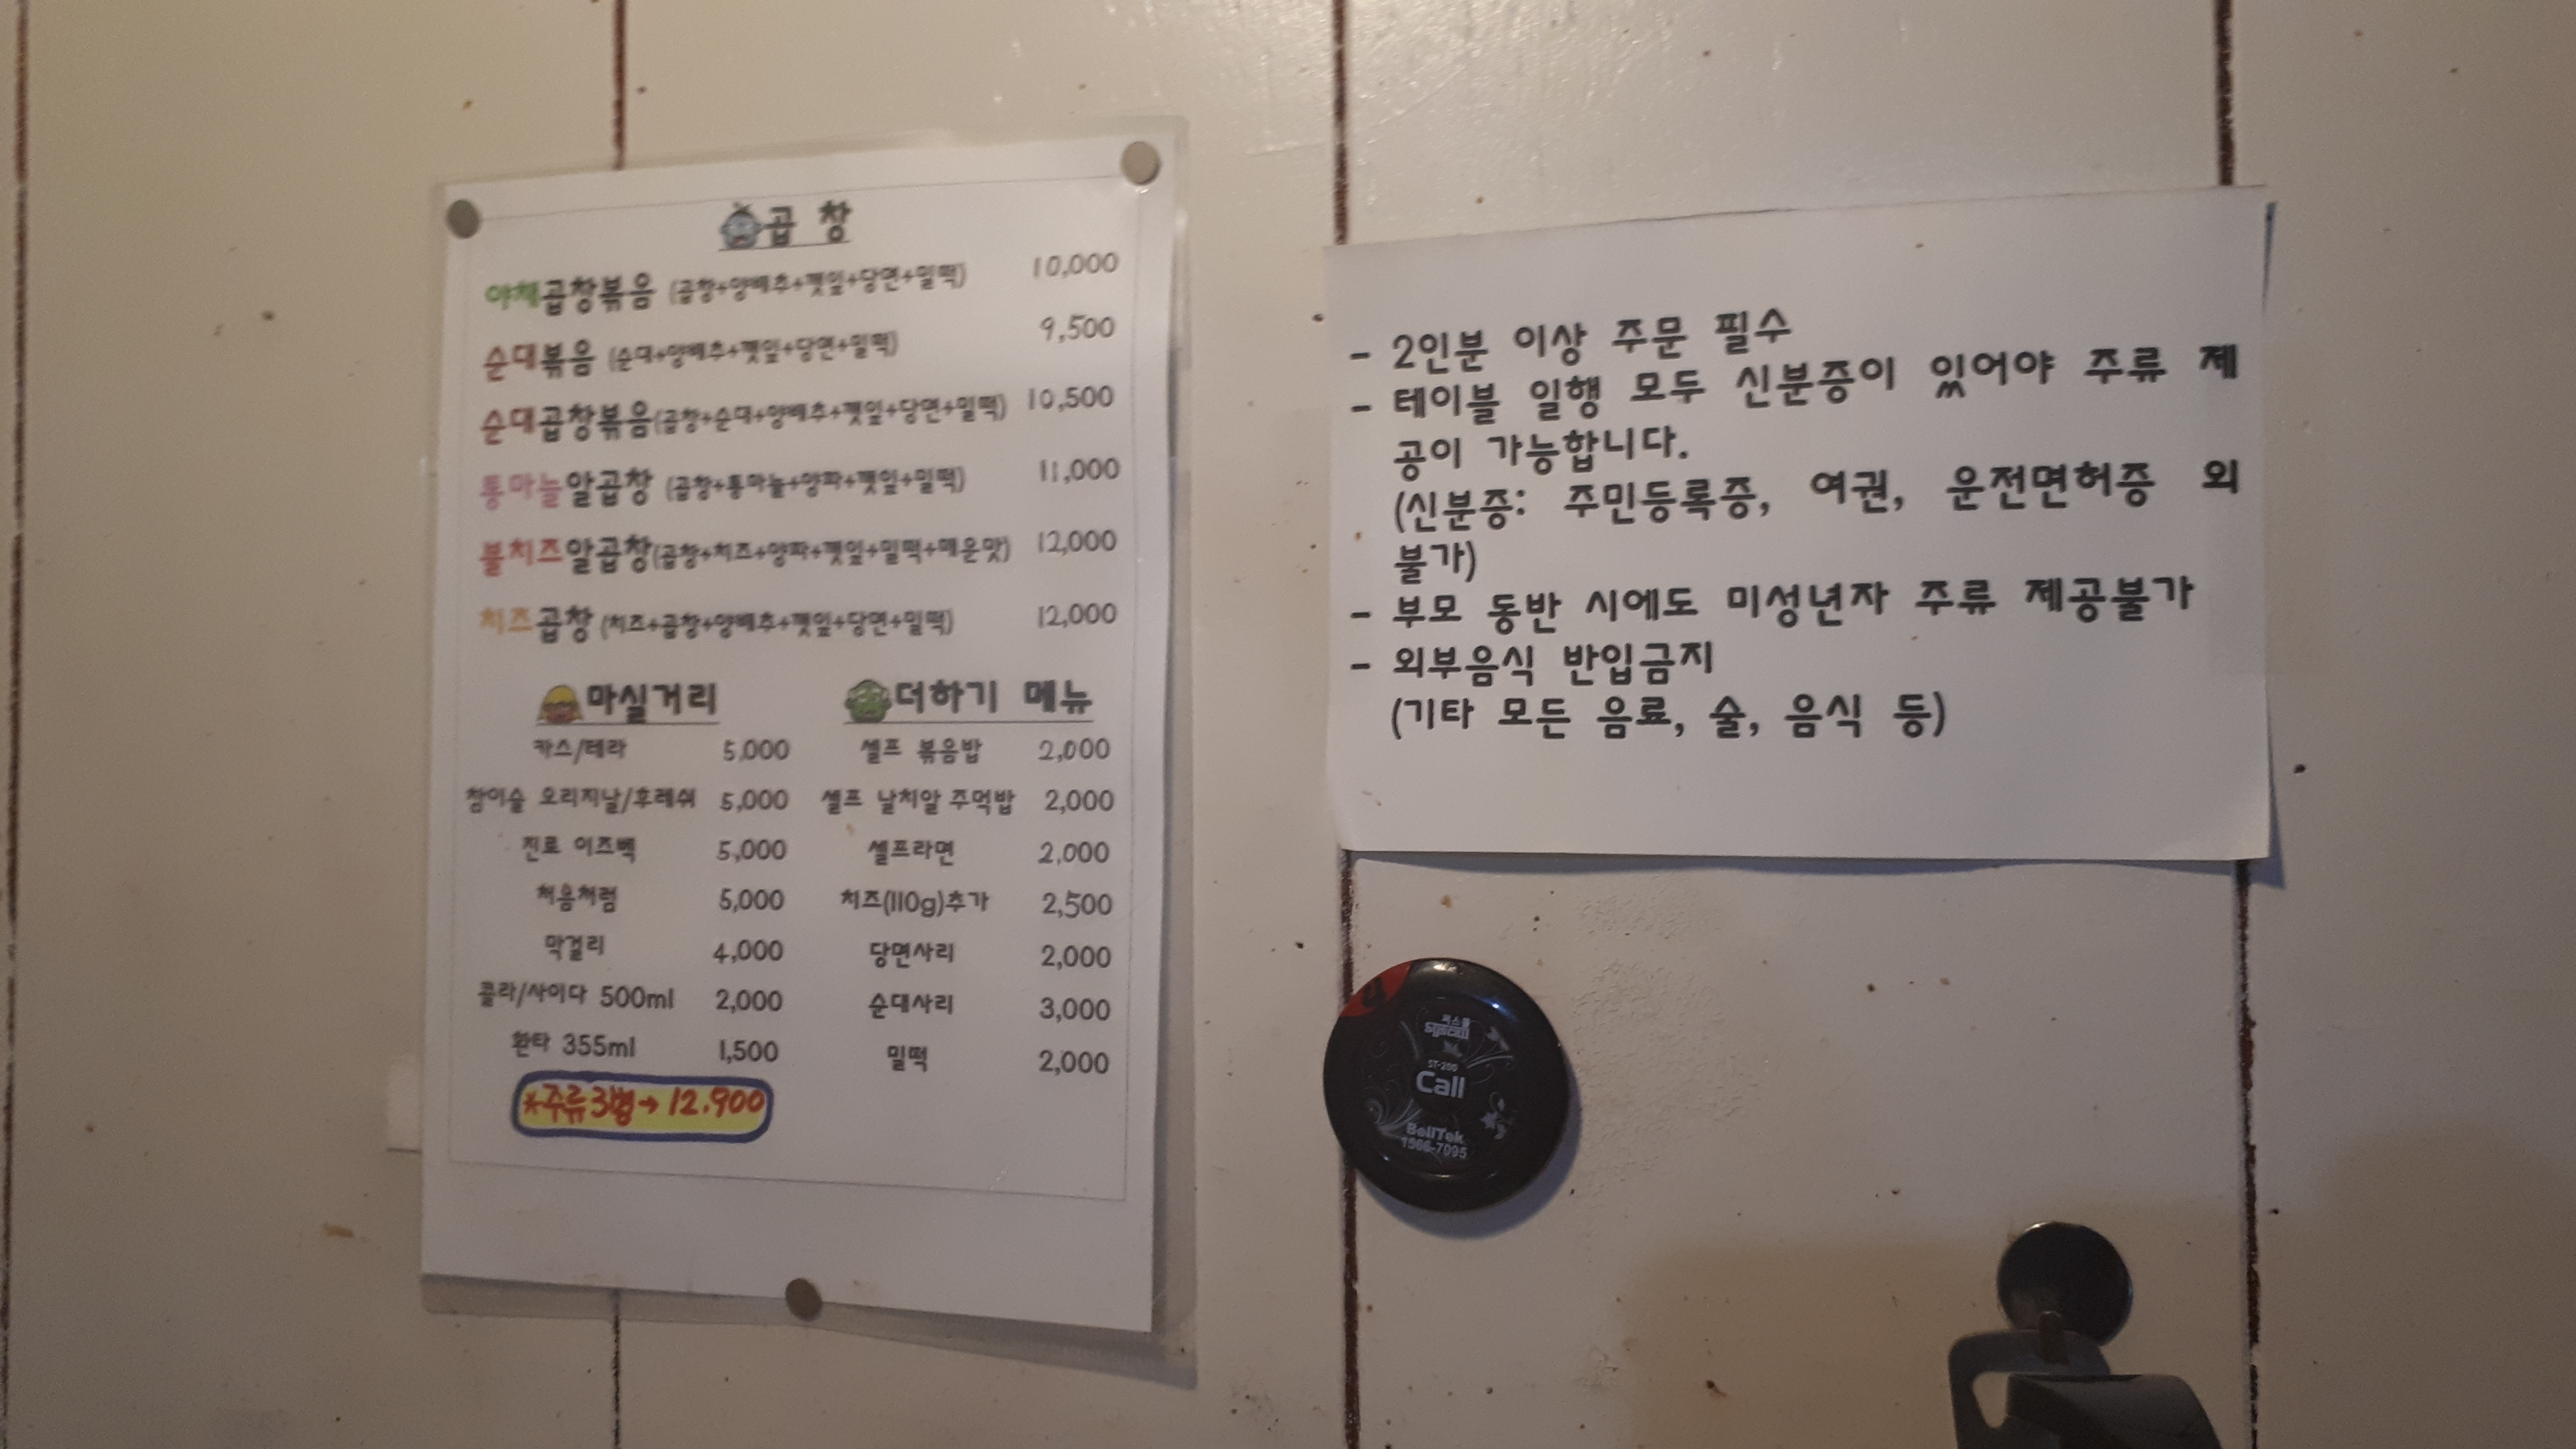 곱 창
야채곱창볶음 (곱창+양배추+깻잎+당면+밀떡) 10,000
순대볶음 (순대+양배추+깻잎+당면+밀떡) 9,500
순대곱창볶음(곱창+순대+양배추+깻잎+당면+밀떡) 10,500
통마늘알곱창 (곱창+통마늘+양파+깻잎+밀떡) 11,000
불치즈알곱창(곱창+치즈+양파+깻잎+밀떡+매운맛) 12,000
치즈곱창 (치즈+곱창+양배추+깻잎+당면+밀떡) 12,000
마실거리
카스/테라 5,000
참이슬 오리지날/후레쉬 5,000
진로 이즈백 5,000
처음처럼 5,000
막걸리 4,000
콜라/사이다 500ml 2,000
환타 355ml 1,500
*주류3병→ 12.900
더하기 메뉴
셀프 볶음밥 2,000
셀프 날치알 주먹밥 2,000
셀프라면 2,000
치즈(110g)추가 2,500
당면사리 2,000
순대사리 3,000
밀떡 2,000
- 2인분 이상 주문 필수
- 테이블 일행 모두 신분증이 있어야 주류 제
공이 가능합니다.
(신분증: 주민등록증, 여권, 운전면허증 외
불가)
- 부모 동반 시에도 미성년자 주류 제공불가
- 외부음식 반입금지
(기타 모든 음료, 술, 음식 등)
4
씨스콜
syscall
ST-200
Call
BellTek
1566-7095